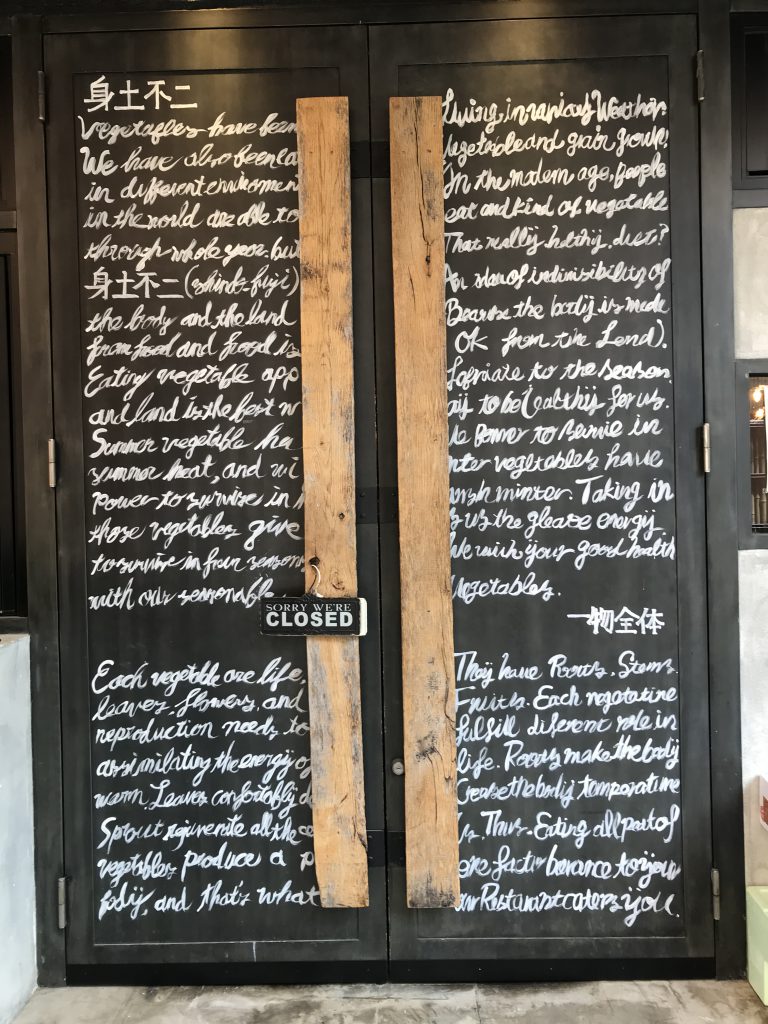 身土不二
Vegetables have been Living in various Weather.
We have also been ea Vegetable and grain grown
in different enviroment In the modern age, people
in the world are able to eat and kind of vegetable
through whole year. but That really helthy. diet?
身土不二(shindo-fuji) An idea of indivisibility of
the body and the land Because the body is made
from food and food is OK from the Land).
Eating vegetable app ropriate to the season.
and land is the best w ay to be healthy for us.
Summer vegetable ha ve Power to survive in
summer heat, and wi nter vegetables have
power to survive in h arsh winter. Taking in
those vegitables give s us the energy
to survive in four seasons. We wish your good health
with our seasonable Vegetables.
SORRY WE'RE
CLOSED
一物全体
Each vegetable are life, They have Roots. Stems.
leaves, flowers, and Fruits. Each
reproduction needs to fulfill diferent role in
assimilating the energy of life. Roots make the body
warm. Leaves confortably de crease the body temperature
Sprout rejuvenite all the ce ls. Thus. Eating all part of
vegetables produce a p to your
body, and that's what our Restaurant caters you.